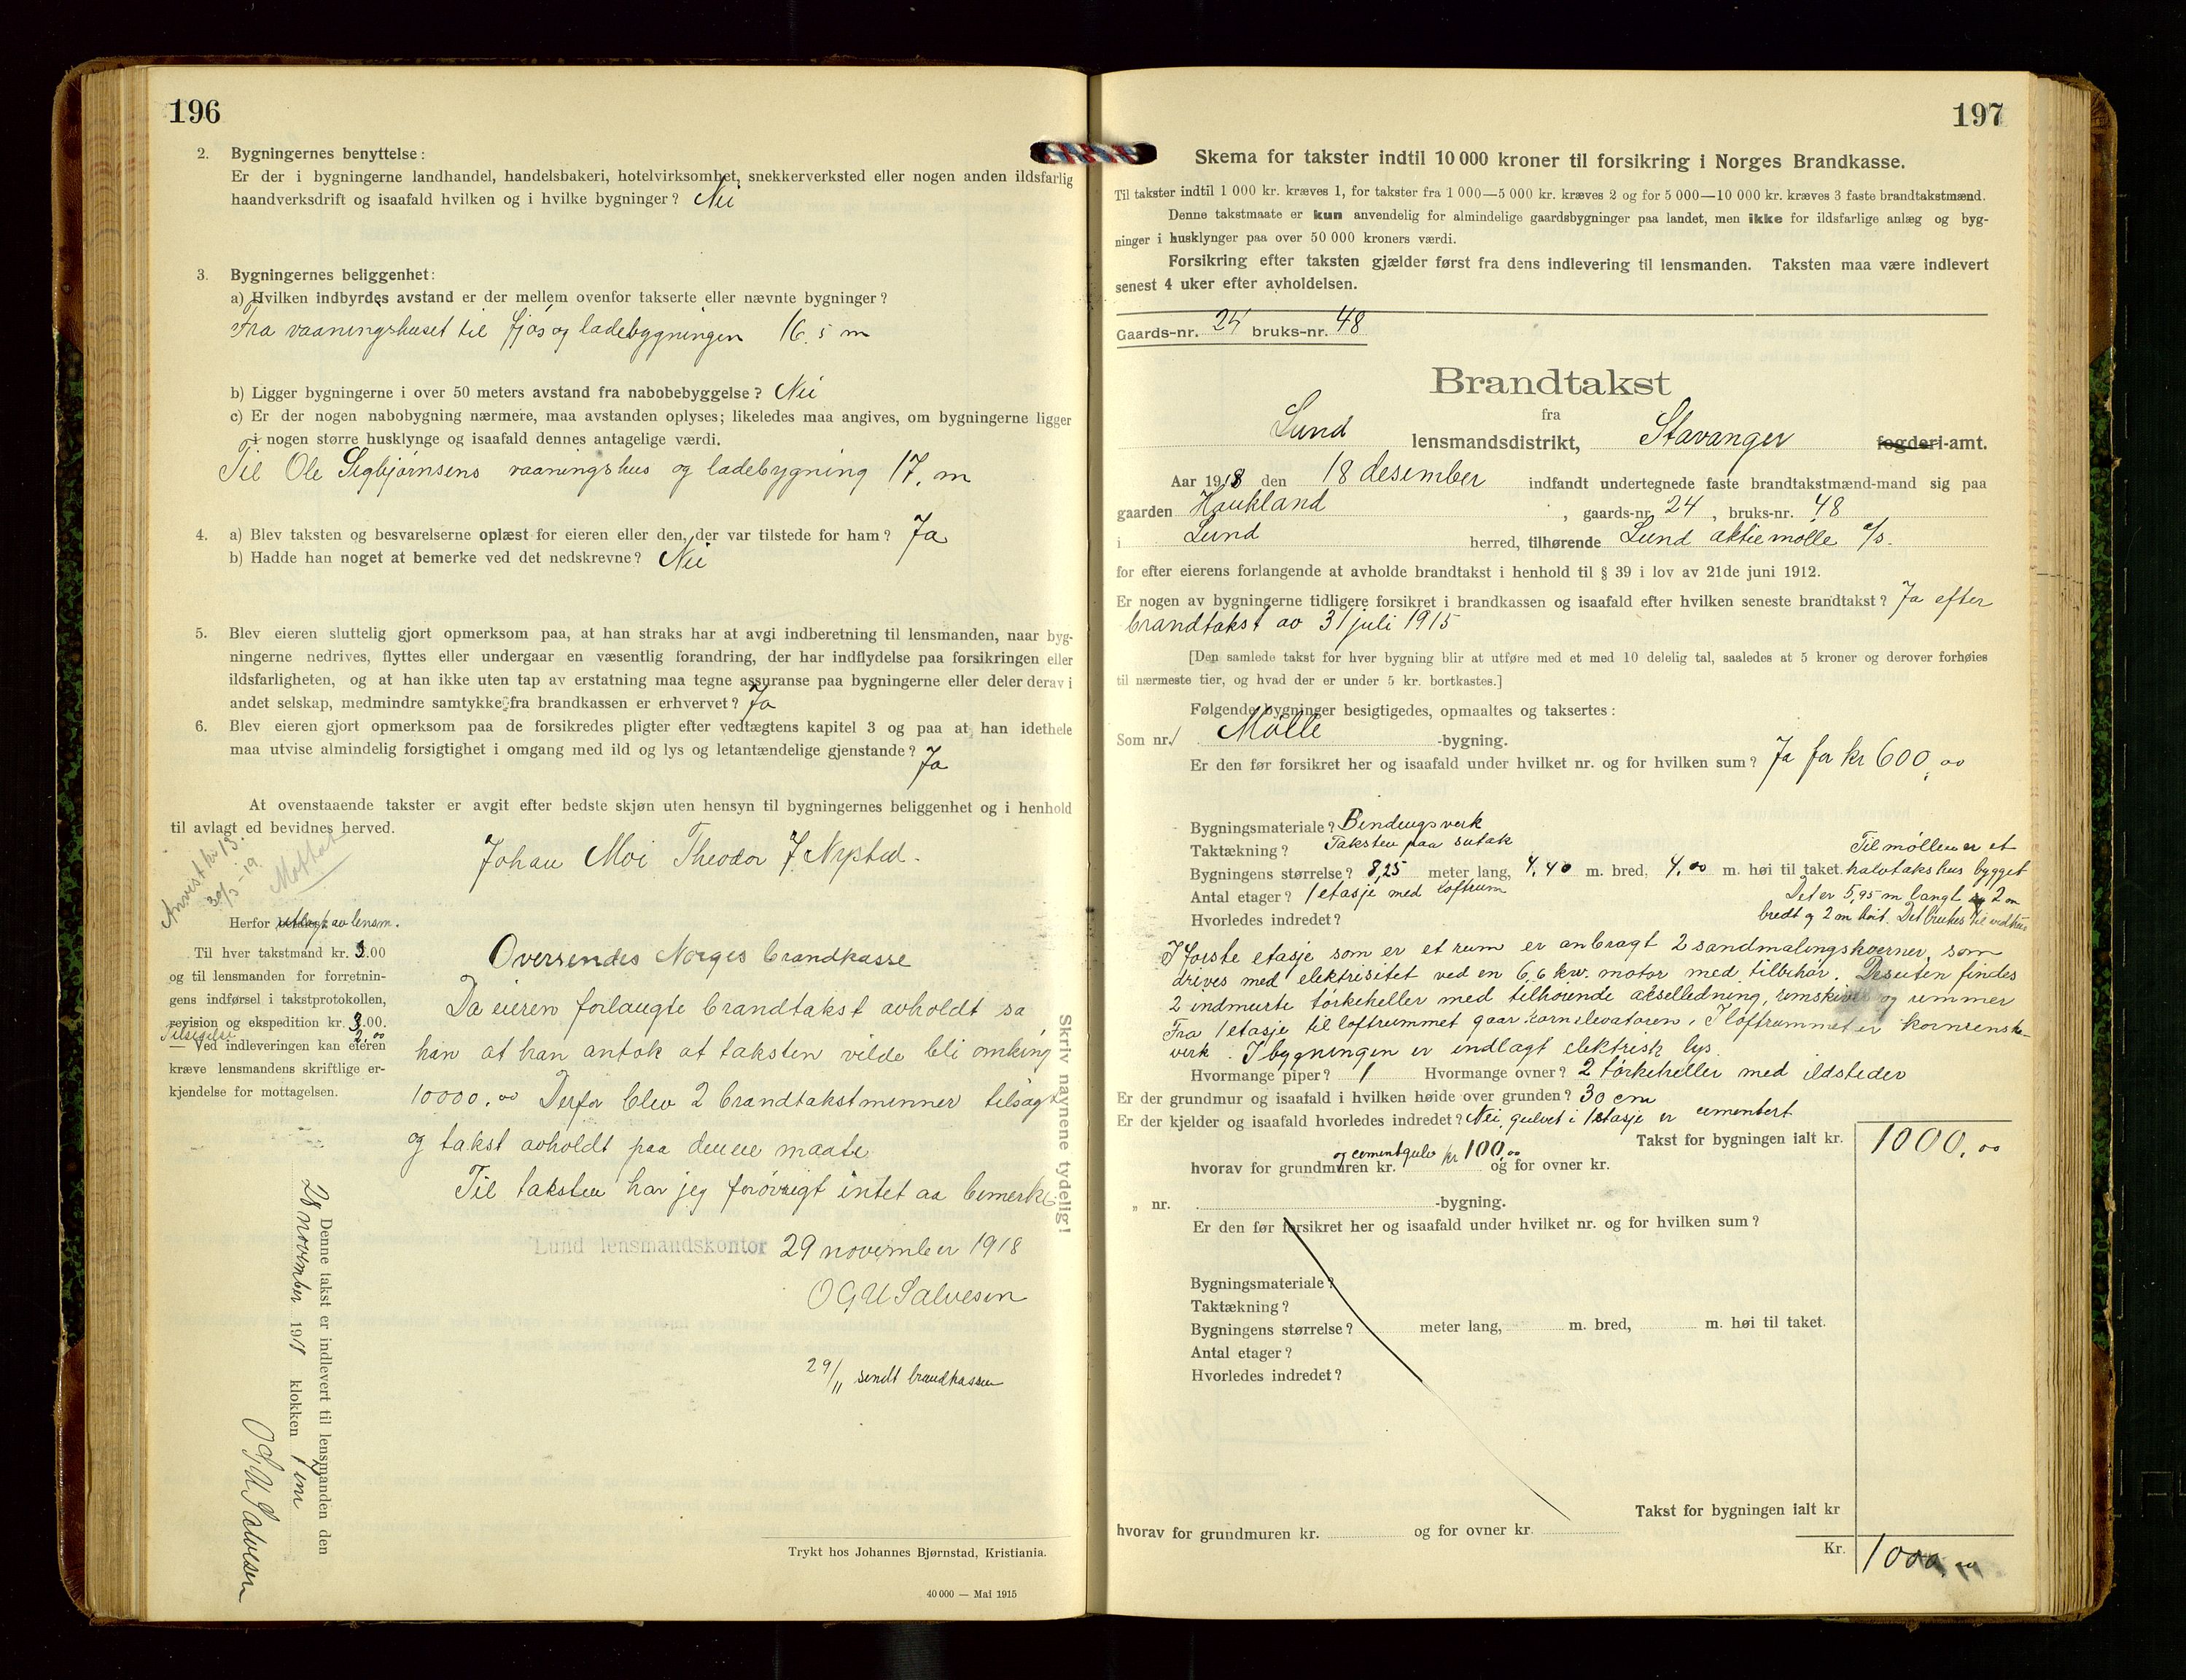 196
2. Bygningernes benyttelse:
Er der i bygningerne landhandel, handelsbakeri, hotelvirksomhet, snekkerverksted eller nogen anden ildsfarlig
haandverksdrift og isaafald hvilken og i hvilke bygninger? Nei
3. Bygningernes beliggenhet:
a) Hvilken indbyrdes avstand er der mellem ovenfor takserte eller nævnte bygninger?
Fra vaaningshuset til fjøs og ladebygningen 16.5 m
b) Ligger bygningerne i over 50 meters avstand fra nabobebyggelse? Nei
c) Er der nogen nabobygning nærmere, maa avstanden oplyses; likeledes maa angives, om bygningerne ligger
i nogen større husklynge og isaafald dennes antagelige værdi.
Til Ole Sigbjørnsens vaaningshus og ladebygning 17. m
4. a) Blev taksten og besvarelserne oplæst for eieren eller den, der var tilstede for ham? Ja
b) Hadde han noget at bemerke ved det nedskrevne? Nei
5. Blev eieren sluttelig gjort opmerksom paa, at han straks har at avgi indberetning til lensmanden, naar byg-
ningerne nedrives, flyttes eller undergaar en væsentlig forandring, der har indflydelse paa forsikringen eller
ildsfarligheten, og at han ikke uten tap av erstatning maa tegne assuranse paa bygningerne eller deler derav i
andet selskap, medmindre samtykke fra brandkassen er erhvervet? Ja
6. Blev eieren gjort opmerksom paa de forsikredes pligter efter vedtægtens kapitel 3 og paa at han idethele
maa utvise almindelig forsigtighet i omgang med ild og lys og letantændelige gjenstande? Ja
At ovenstaaende takster er avgit efter bedste skjøn uten hensyn til bygningernes beliggenhet og i henhold
til avlagt ed bevidnes herved.
Johan Moi Theodor J. Nysted.
Anvist kr 13.
30/3-19
Mottat
Herfor utlagt av lensm.
Til hver takstmand kr. 3.00
og til lensmanden for forretnin-
gens indførsel i takstprotokollen,
revision og ekspedition kr. 3.00.
Tilsigelse 2,00
— Ved indleveringen kan eieren
kræve lensmandens skriftlige er-
kjendelse for mottagelsen.
Oversendes Norges brandkasse
Da eieren forlangte brandtakst avholdt sa
han at han antok at taksten vilde bli omkring
10000.00 Derfor blev 2 brandtakstmenner tilsagt
og takst avholdt paa denne maate
Til taksten har jeg forøvrigt intet aa bemerke.
Lund lensmandskontor 29 november 1918
O G U Salvesen
29/11 sendt brandkassen
Skriv navnene tydelig!
Denne takst er indlevert til lensmanden den
28 november 1918 klokken 1 em
O G U Salvesen
Trykt hos Johannes Bjørnstad, Kristiania.
40 000 — Mai 1915
197
Skema for takster indtil 10 000 kroner til forsikring i Norges Brandkasse.
Til takster indtil 1 000 kr. kræves 1, for takster fra 1 000—5 000 kr. kræves 2 og for 5 000—10 000 kr. kræves 3 faste brandtakstmænd.
Denne takstmaate er kun anvendelig for almindelige gaardsbygninger paa landet, men ikke for ildsfarlige anlæg og byg-
ninger i husklynger paa over 50 000 kroners værdi.
Forsikring efter taksten gjælder først fra dens indlevering til lensmanden. Taksten maa være indlevert
senest 4 uker efter avholdelsen.
Gaards-nr. 24 bruks-nr. 48
Brandtakst
fra
Lund lensmandsdistrikt, Stavanger fogderi-amt.
Aar 1918 den 18 desember indfandt undertegnede faste brandtakstmænd-mand sig paa
gaarden Haukland, gaards-nr. 24, bruks-nr. 48
i Lund herred, tilhørende Lund aktiemølle a/s.
for efter eierens forlangende at avholde brandtakst i henhold til § 39 i lov av 21de juni 1912.
Er nogen av bygningerne tidligere forsikret i brandkassen og isaafald efter hvilken seneste brandtakst? Ja efter
brandtakst av 31 juli 1915
[Den samlede takst for hver bygning blir at utføre med et med 10 delelig tal, saaledes at 5 kroner og derover forhøies
til nærmeste tier, og hvad der er under 5 kr. bortkastes.]
Følgende bygninger besigtigedes, opmaaltes og taksertes:
Som nr. 1 Mølle -bygning.
Er den før forsikret her og isaafald under hvilket nr. og for hvilken sum? Ja for kr 600,00
Bygningsmateriale? Bindingsverk
Taktækning? Taksten paa sutak
Bygningens størrelse? 8,25 meter lang, 4,40 m. bred, 4,00 m. høi til taket.
Antal etager? 1 etasje med loftrum
Hvorledes indredet?
Til møllen er et
halvtakshus bygget
Det er 5,95 m langt 2 m
bredt og 2 m høit. Det brukes til vedhus
I første etasje som er et rum er anbragt 2 sandmalingskverner, som
drives med elektrisitet ved en 6,6 kw. motor med tilbehør. Desuten findes
2 indmurte tørkeheller med tilhørende akselledning, remskiver og remmer
Fra 1 etasje til loftrummet gaar kornelevatoren. I loftrummet er kornrense-
verk. I bygningen er indlagt elektrisk lys.
Hvormange piper? 1 Hvormange ovner? 2 tørkeheller med ildsteder
Er der grundmur og isaafald i hvilken høide over grunden? 30 cm
Er der kjelder og isaafald hvorledes indredet? Nei, gulvet i 1 etasje er cementert
Takst for bygningen ialt kr. 1000,00
hvorav for grundmuren kr. og cementgulv kr 100,00 og for ovner kr.
„ nr. -bygning.
Er den før forsikret her og isaafald under hvilket nr. og for hvilken sum?
Bygningsmateriale?
Taktækning?
Bygningens størrelse? meter lang, m. bred, m. høi til taket.
Antal etager?
Hvorledes indredet?
Takst for bygningen ialt kr
hvorav for grundmuren kr. og for ovner kr.
Kr. 1000,00